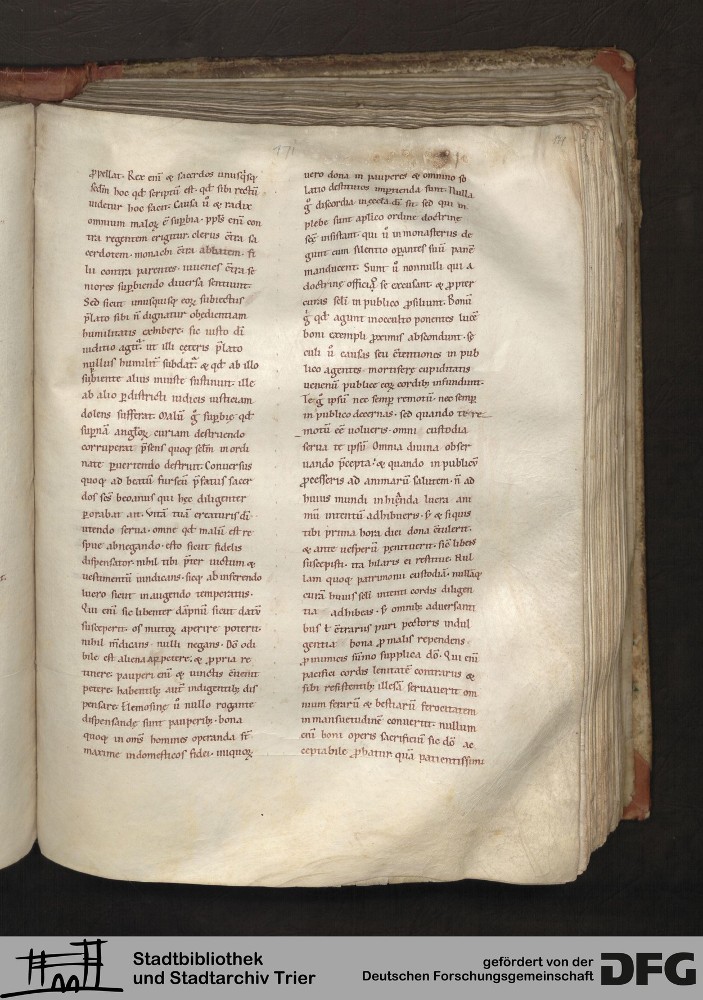 ꝓpellat. Rex eni᷑ & sacerdos unusq̇sq;
sedm̄ hoc qd̄ scriptū est. qd̄ sibi rectū
uidetur hoc facit. Causa u̇ & radix
omnium maloꝝ ē supbia. pp̄ls eni᷑ con
tra regentem erigitur. clerus c̄tra sa
cerdotem. monachi c̄tra abbatem. fi
lii contra parentes. iuuenes c̄tra se
niores supbiendo diuersa sentiunt.
Sed sicut unusquisq; eoꝝ subiectus
p̄lato sibi n̄ dignatur obedientiam
humilitatis exhibere. sic iusto dī
iudicio agit᷑. ut illi ceteris p̄lato
nullus humilit̄ subdat᷑. & qd̄ ab illo
subiente alius iniuste sustinuit. ille
ab alio ꝑ districti iudicis iusticiam
dolens sufferat. Malū ġ supbię qd̄
supnā angłoꝝ curiam destruendo
corruperat p̄sens quoq; sclm̄ inordi
nate puertendo destruit. Conuersus
quoq; ad beatū furseū p̄fatus sacer
dos sc̄s beoanus qui hęc diligenter
ꝑorabat ait. Vitā tuā creaturis dī
utendo serua. omne qd̄ malū est re
spue abnegando. esto sicut fidelis
dispensator. nihil tibi p̄ter uictum &
uestimentū uindicans. sicq; ab inferendo
lucro sicut in augendo temperatus.
Qui eni᷑ sic libenter dāpnū sicut datū
susceperit. os mutoꝝ aperire poterit.
nihil m̄dicans. nulli negans. Dō odi
bile est aliena appetere. & ꝓpria re
tinere. pauperi eni᷑ & uinctis c̄uenit
petere. habentib; aut̄ indigentib; dis
pensare. Elemosinę u̇ nullo rogante
dispensandę sunt pauperib;. bona
quoq; in oms̄ homines operanda st̄
maxime in domesticos fidei. iniquoꝝ
uero dona in pauperes & omnino so
latio destitutos inprtienda sunt. Nulla
ġ discordia in eccła dī sit. sed qui in
plebe sunt aplico ordine doctrinę
scę insistant. qui u̇ in monasteriis de
gunt cum silentio opantes suū panē
manducent. Sunt u̇ nonnulli qui a
doctrinę officio se excusant. & ꝓpter
curas sc̄li in publico ꝓsiliunt. Bonū
ġ qd̄ agunt in occulto ponentes lucē
boni exempli ꝓximis abscondunt. se
culi u̇ causas seu c̄tentiones in pub
lico agentes. mortiferę cupiditatis
uenenū publice eoꝝ cordib; infundunt.
Te ġ ipsū nec semp remotū. nec semp
in publico decernas. sed quando te re
motū eē uolueris. omni custodia
serua te ipsū. Omnia diuina obser
uando p̄cepta. & quando in publicū
ꝓcesseris ad animarū salutem. n̄ ad
huius mundi inhianda lucra ani
mū intentū adhibueris. & si quis
tibi prima hora diei dona c̄tulerit.
& ante uesperū penituerit. sic̄ libens
suscepisti. ita hilaris ei restitue. Nul
lam quoq; patrimonii custodiā. nullāq;
curā huius sc̄li intenti cordis diligen
tia adhibeas. s; omnib; adversanti
bus t̄ c̄trariis puri pectoris indul
gentia bona p malis rependens.
p inimicis sūmo supplica dō. Qui eni᷑
pacifici cordis lenitatē contrariis &
sibi resistentib; illesā seruauerit om
nium ferarū & bestiarū ferocitatem
in mansuetudinē conuertit. nullum
eni᷑ boni operis sacrificiū sic dō ac
ceptabile ꝓbatur quā patientissimi
Stadtbibliothek
und Stadtarchiv Trier
gefördert von der
Deutschen Forschungsgemeinschaft
DFG